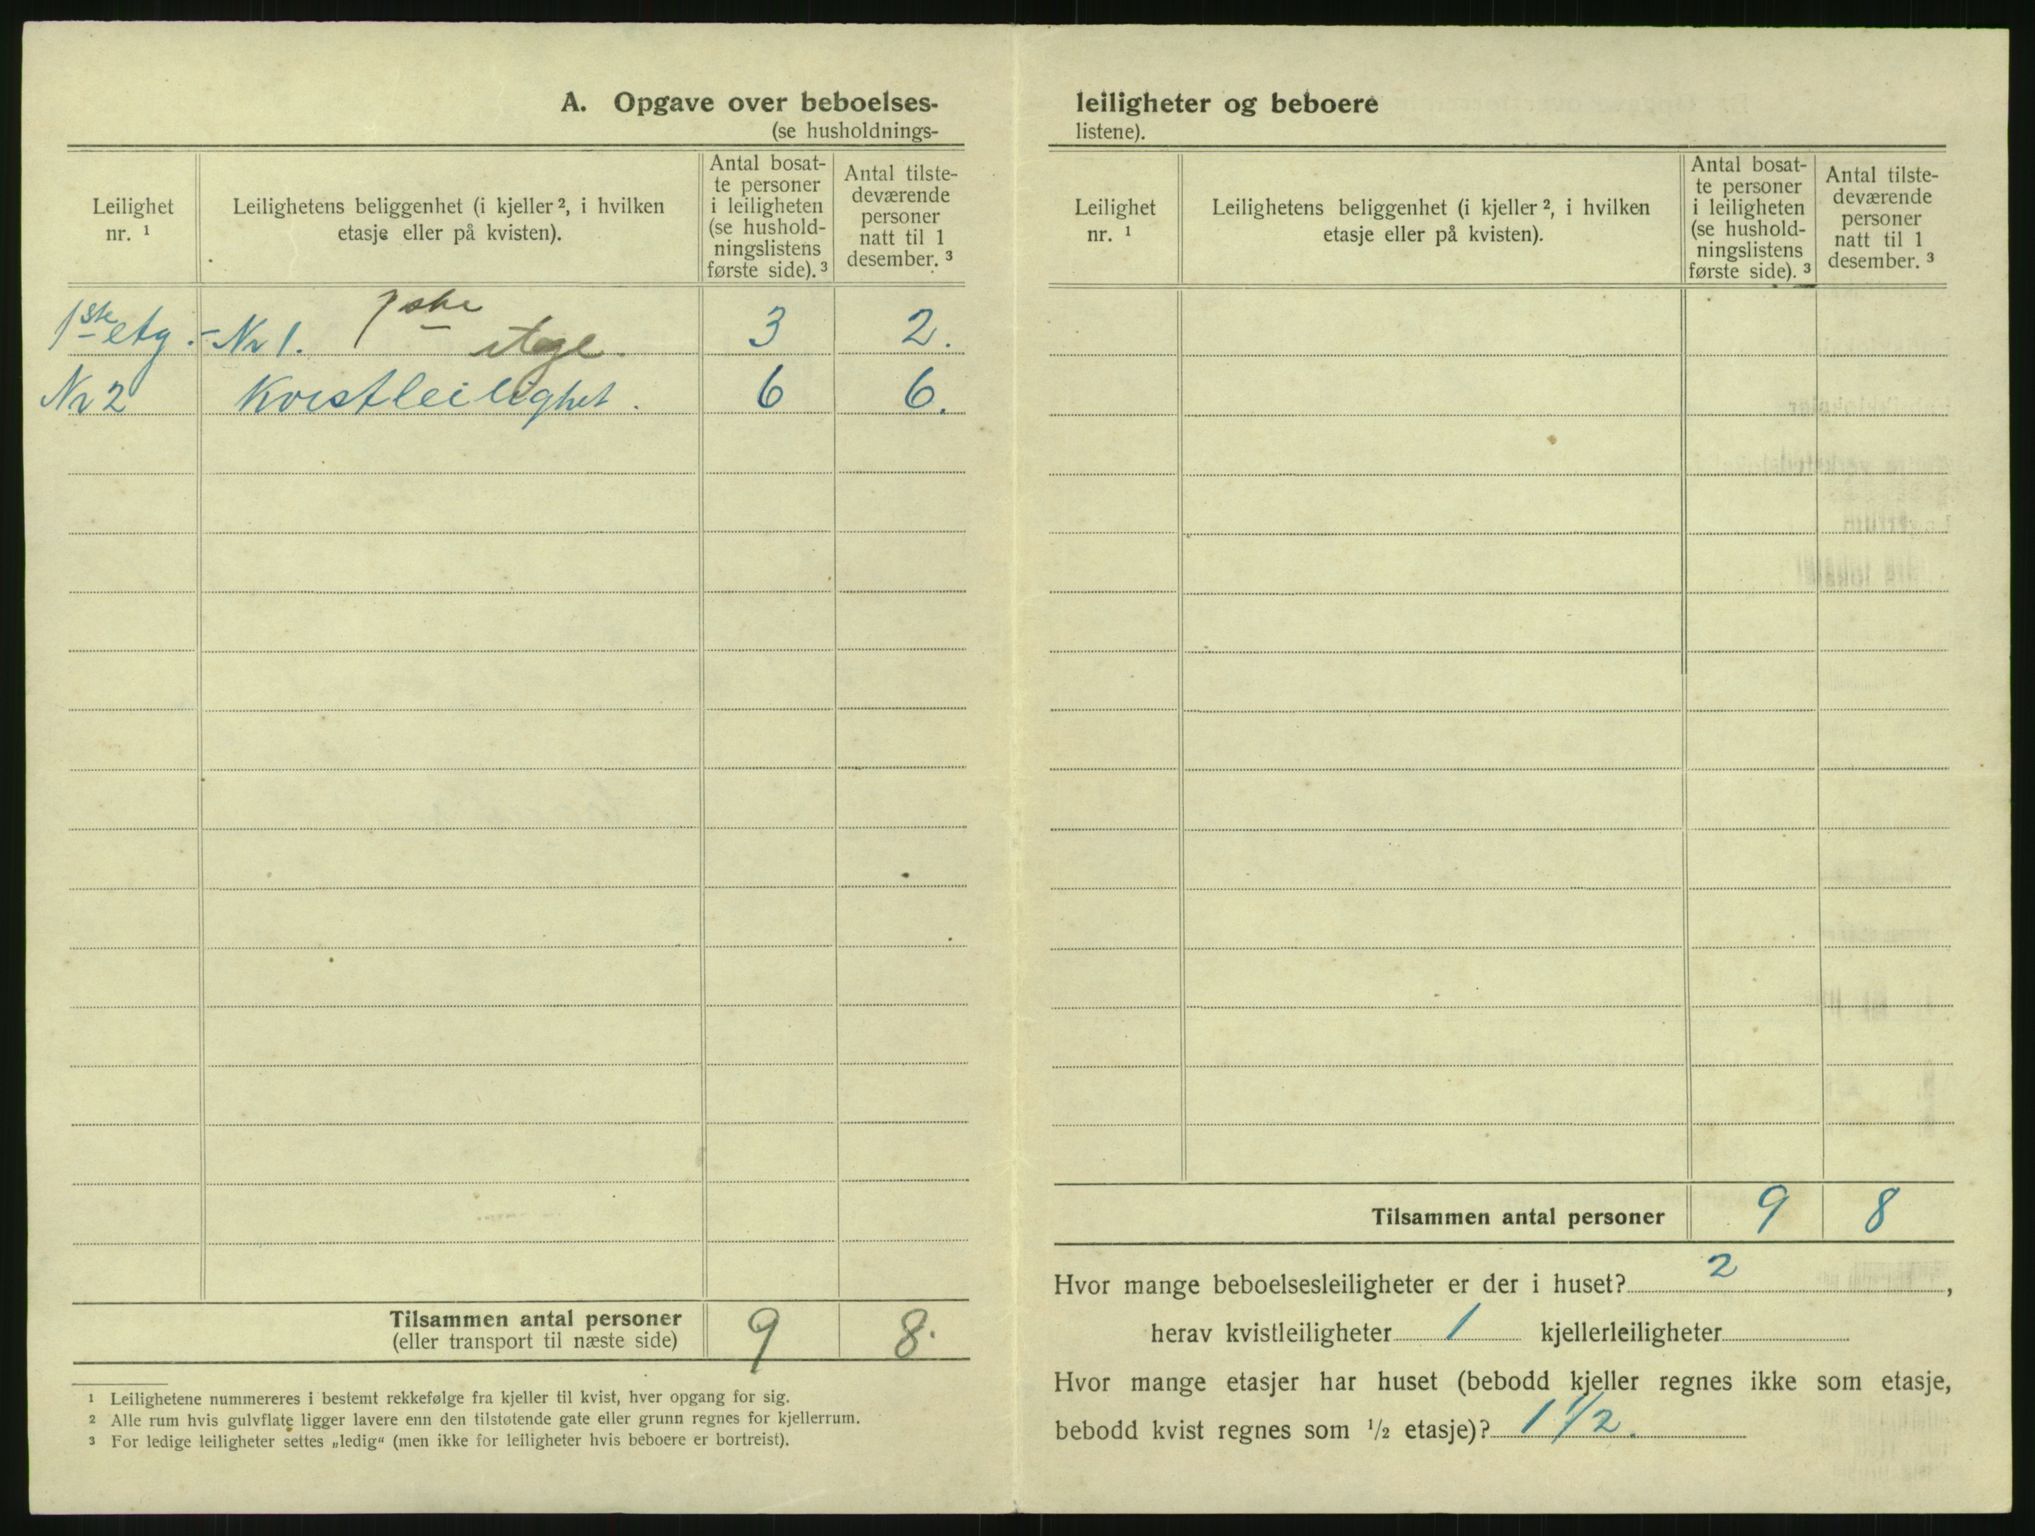 A. Opgave over beboelses-
(se husholdnings-
Leilighet
nr. ¹
Leilighetens beliggenhet (i kjeller ², i hvilken
etasje eller på kvisten).
Antal bosat-
te personer
i leiligheten
(se hushold-
ningslistens
første side). ³
Antal tilste-
deværende
personer
natt til 1
desember. ³
1ste etg. - Nr 1. 1ste etage. 3 2.
Nr 2 Kvistleilighet. 6 6.
Tilsammen antal personer 9 8.
(eller transport til næste side)
¹ Leilighetene nummereres i bestemt rekkefølge fra kjeller til kvist, hver opgang for sig.
² Alle rum hvis gulvflate ligger lavere enn den tilstøtende gate eller grunn regnes for kjellerrum.
³ For ledige leiligheter settes „ledig“ (men ikke for leiligheter hvis beboere er bortreist).
leiligheter og beboere
listene).
Leilighet
nr. ¹
Leilighetens beliggenhet (i kjeller ², i hvilken
etasje eller på kvisten).
Antal bosat-
te personer
i leiligheten
(se hushold-
ningslistens
første side). ³
Antal tilste-
deværende
personer
natt til 1
desember. ³
Tilsammen antal personer 9 8
Hvor mange beboelsesleiligheter er der i huset? 2 ,
herav kvistleiligheter 1 kjellerleiligheter
Hvor mange etasjer har huset (bebodd kjeller regnes ikke som etasje,
bebodd kvist regnes som ½ etasje)? 1 ½.